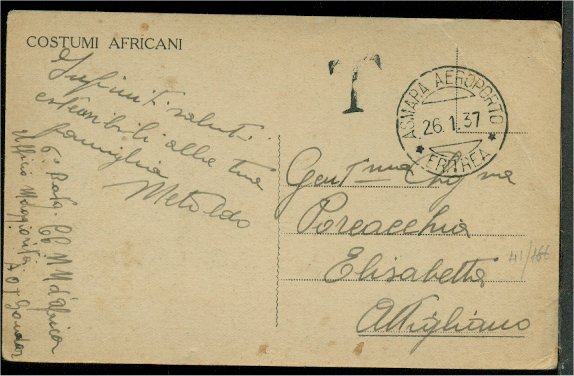 COSTUMI AFRICANI
Infiniti saluti
estensibili alla tua
famiglia
Metoldo
6° Batg. CC NN d'Africa
Ufficio Maggiorità
A O I Gondar
T
ASMARA AEROPORTO
26.1.37
ERITREA
Gent.ma Sig.na
Porcacchia
Elisabetta
Attigliano
41/166